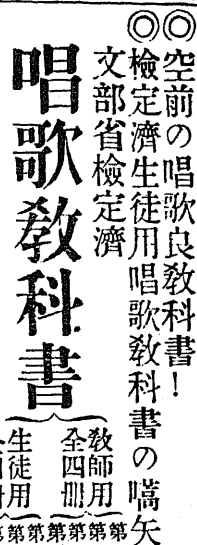 ◎空前の唱歌良教科書！
◎檢定濟生徒用唱歌教科書の嚆矢
文部省檢定濟
唱歌教科書
教師用
全四册
生徒用
第第第第第第